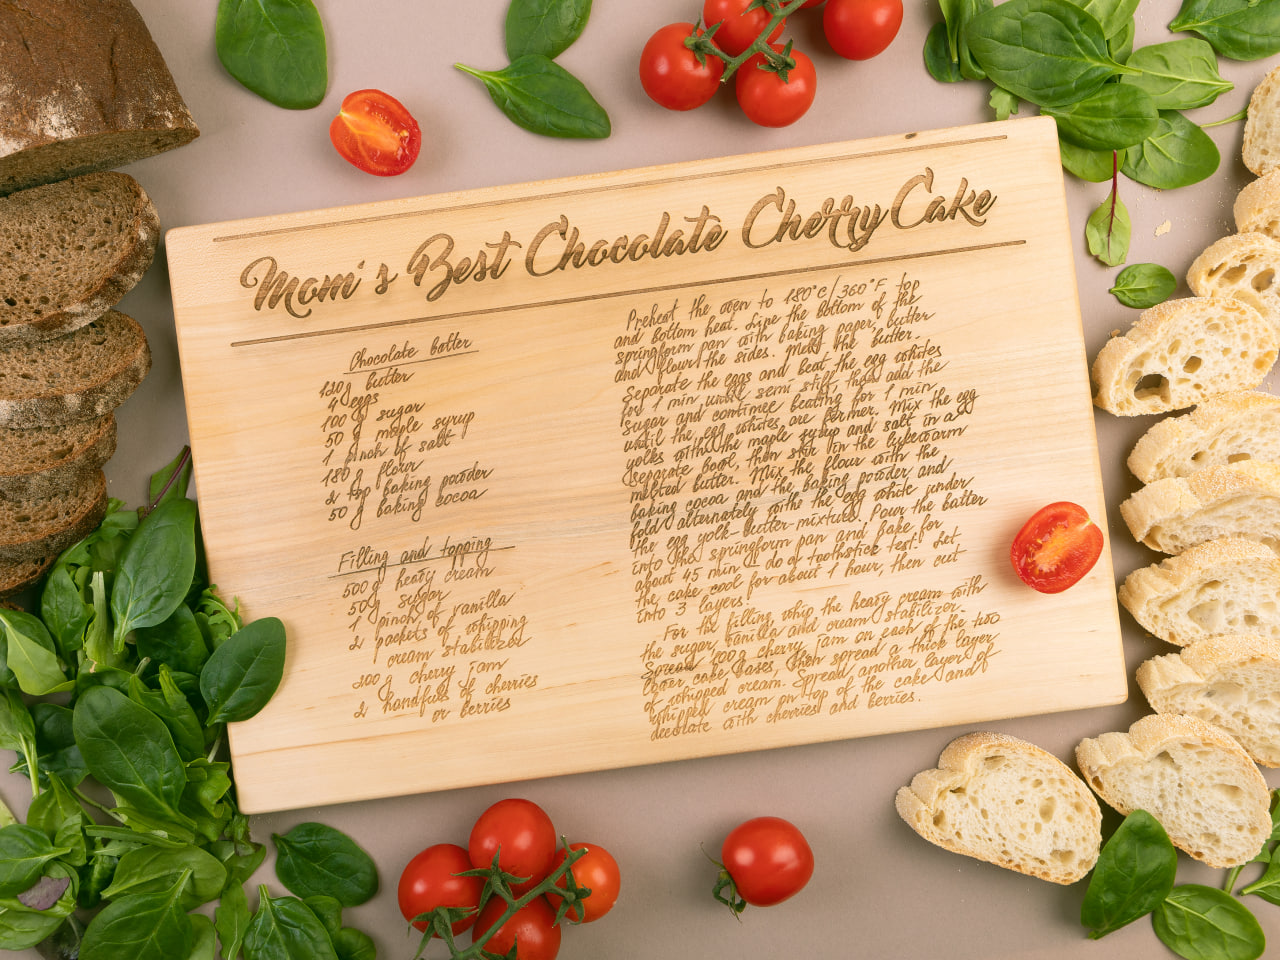 Mom's Best Chocolate Cherry Cake
Chocolate batter
120g butter
4 eggs
100 g sugar
50 g maple syrup
1 pinch of salt
180 g flour
2 tsp baking powder
50 g baking cocoa
Filling and topping
500g heavy cream
50g sugar
1 pinch of vanilla
2 packets of whipping
cream stabilizer
200 g cherry jam
2 handfuls of cherries
or berries
Preheat the oven to 180°C/360°F top
and bottom heat. Line the bottom of the
springform pan with baking paper, butter
and flour the sides. Melt the butter.
Separate the eggs and beat the egg whites
for 1 min until semi stiff, then add the
sugar and continue beating for 1 min
until the egg whites are firmer. Mix the egg
yolks with the maple syrup and salt in a
separate bowl, then stir in the lukewarm
melted butter. Mix the flour with the
baking cocoa and the baking powder and
fold alternately with the egg white under
the egg yolk-butter-mixture. Pour the batter
into the springform pan and bake for
about 45 min - do a toothstick test. Let
the cake cool for about 1 hour, then cut
into 3 layers.
For the filling, whip the heavy cream with
the sugar, vanilla and cream stabilizer.
Spread 100g cherry jam on each of the two
lower cake bases, then spread a thick layer
of whipped cream. Spread another layer of
whipped cream on top of the cake and
decorate with cherries and berries.